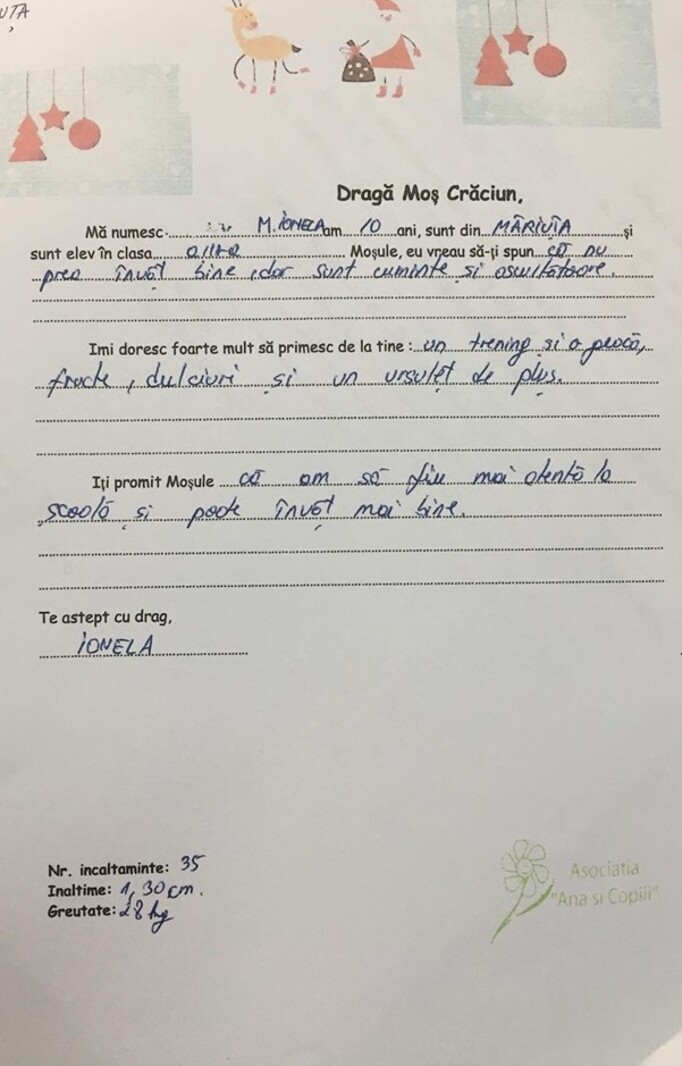 UȚA
Dragă Moș Crăciun,
Mă numesc M. IONELA am 10 ani, sunt din MĂRIUȚA și
sunt elev în clasa a III-a. Moșule, eu vreau să-ți spun că nu
prea învăț bine, dar sunt cuminte și ascultătoare.
Imi doresc foarte mult să primesc de la tine: un trening și o geacă,
fructe, dulciuri și un ursuleț de pluș.
Iți promit Moșule că am să fiu mai atentă la
școală și poate învăț mai bine.
Te astept cu drag,
IONELA
Nr. incaltaminte: 35
Inaltime: 1,30 cm.
Greutate: 28 kg
Asociatia
"Ana si Copiii"